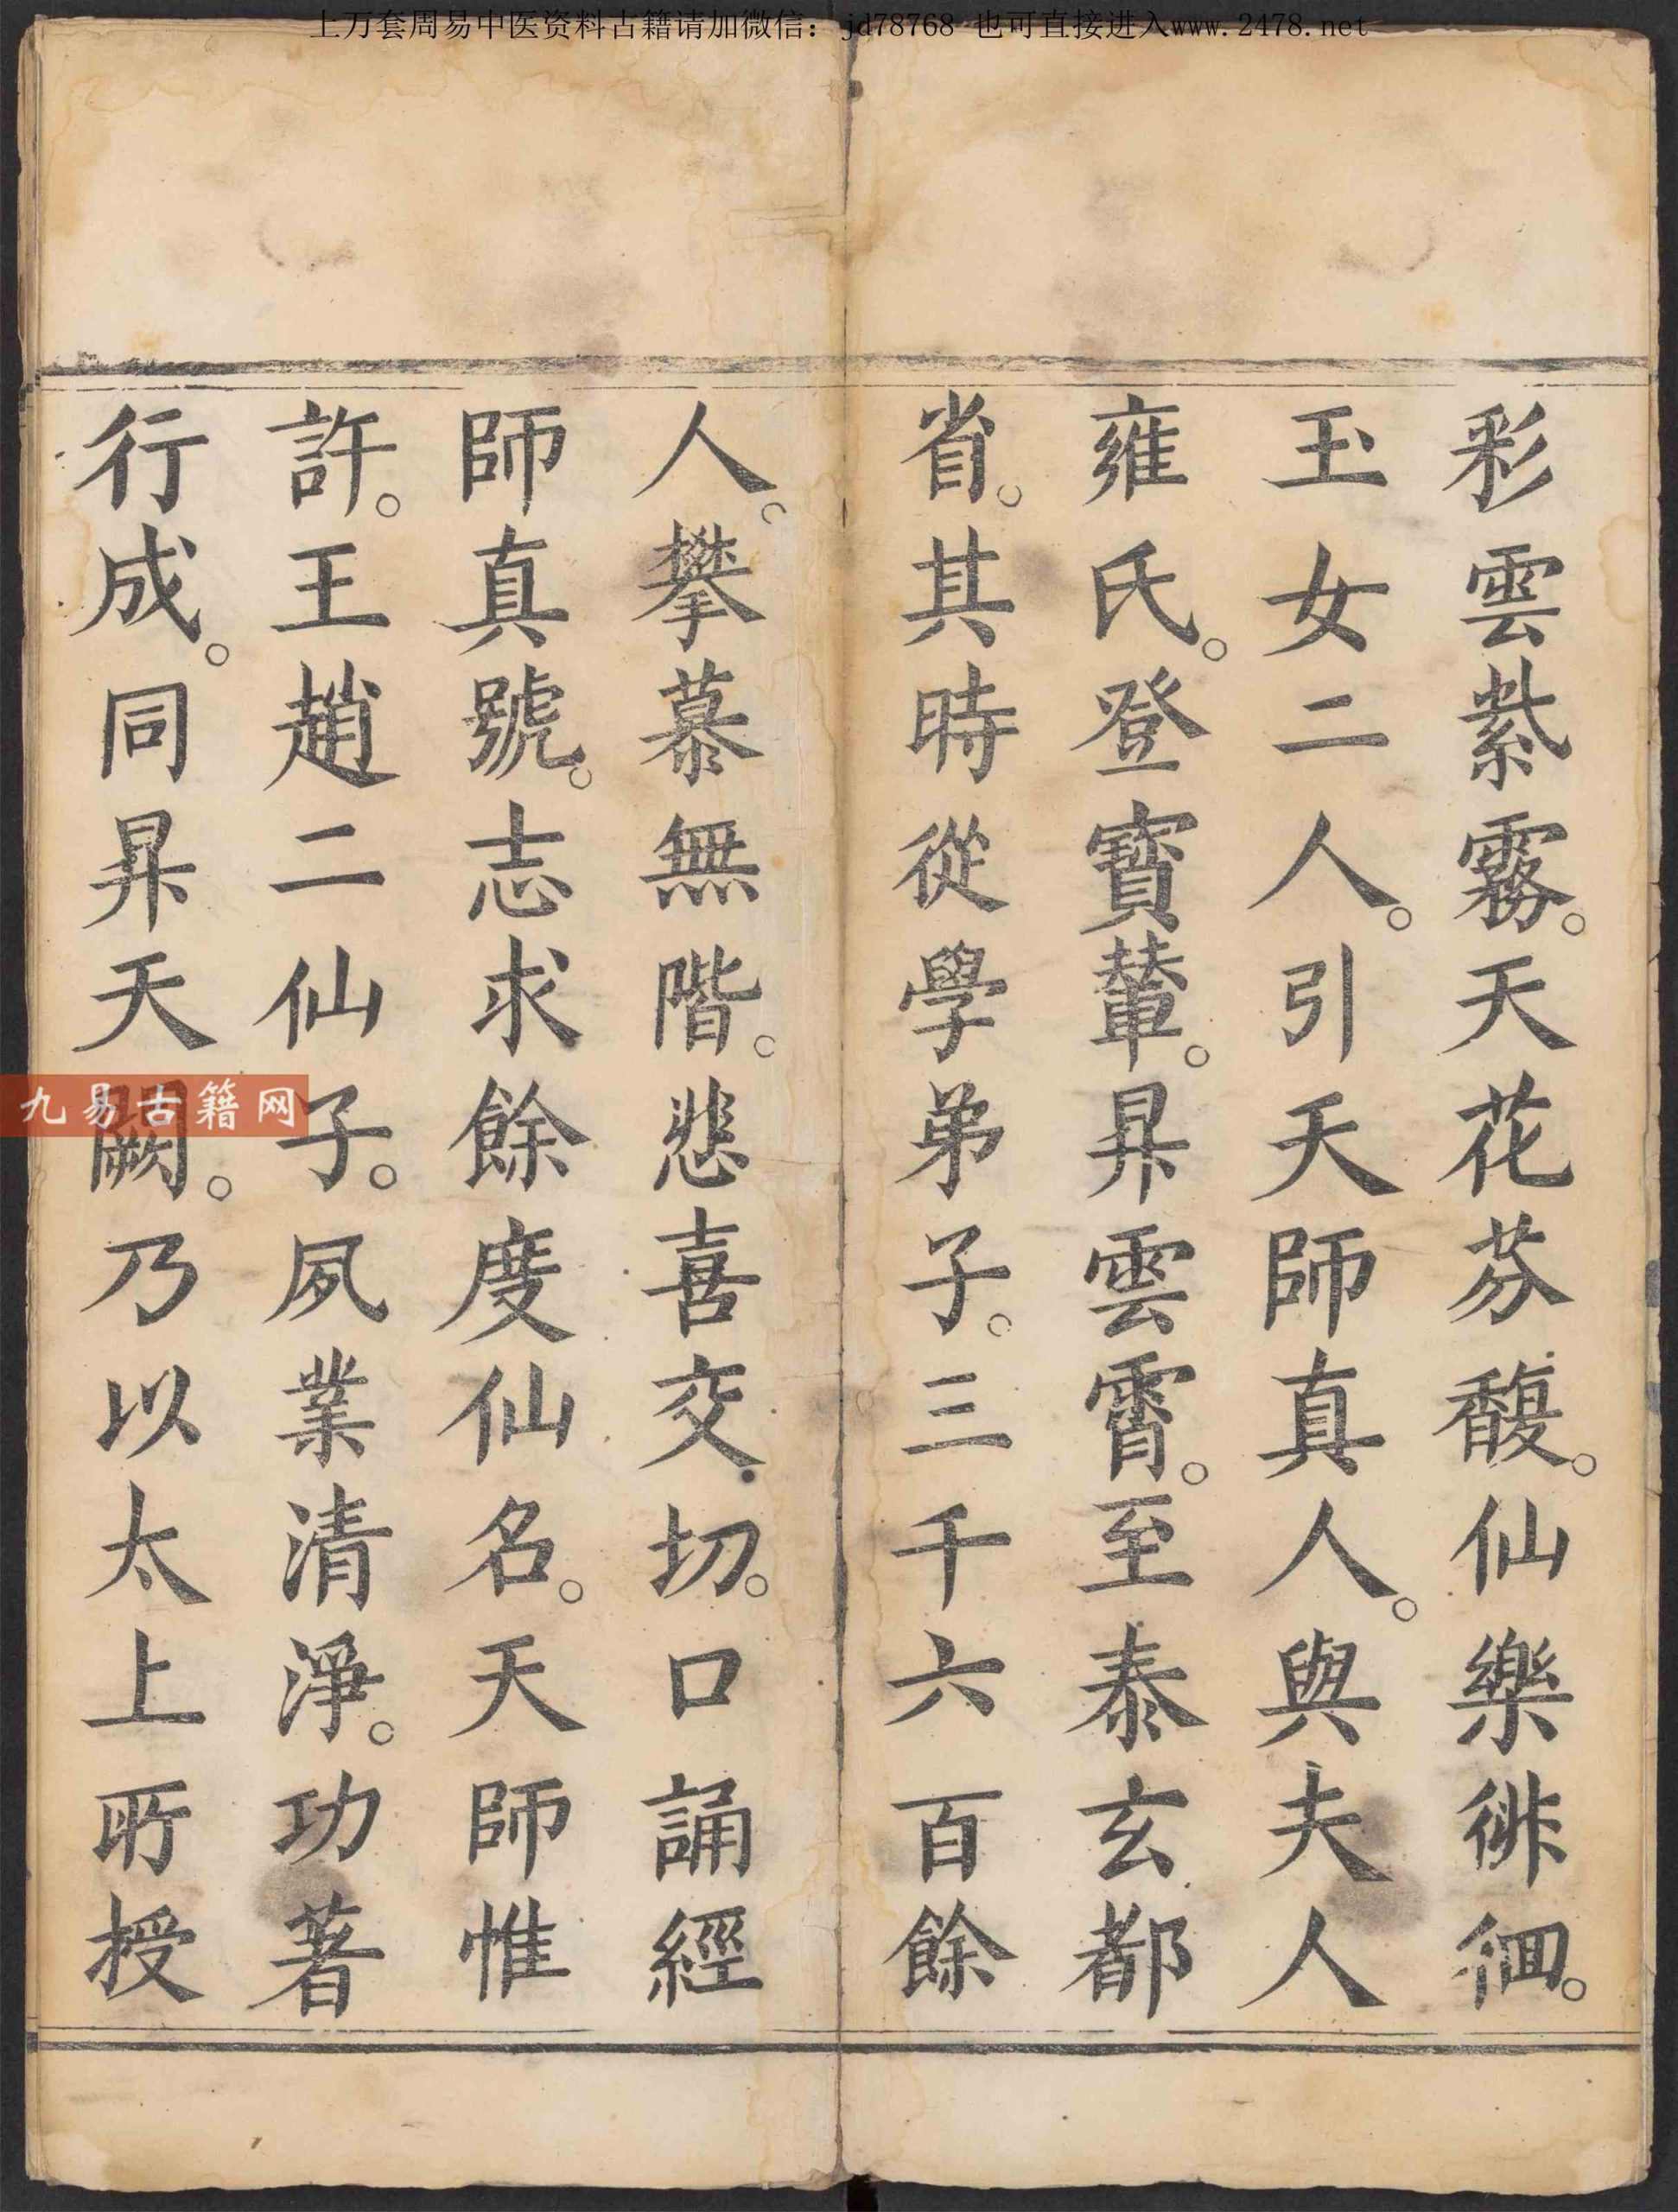 上万套周易中医资料古籍请加微信：jd78768 也可直接进入www.2478.net
彩雲紫霧。天花芬馥。仙樂徘徊。
玉女二人。引天師真人。與夫人
雍氏。登寶輦。昇雲霄。至泰玄都
省。其時從學弟子。三千六百餘
人。攀慕無階。悲喜交切。口誦經
師真號。志求餘度仙名。天師惟
許。王趙二仙子。夙業清淨。功著
行成。同昇天闕。乃以太上所授
九易古籍网